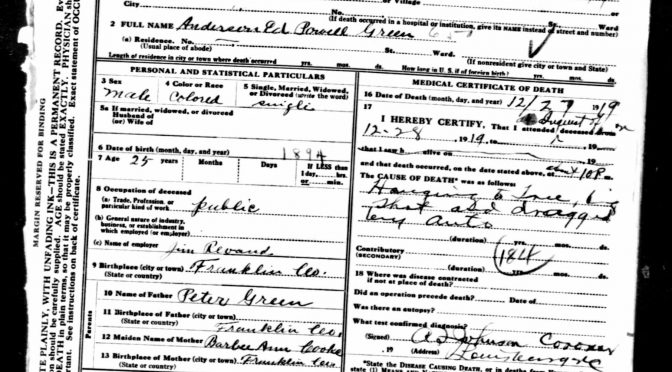 City
St.
Ward
(If death occurred in a hospital or institution, give its NAME instead of street and number)
2 FULL NAME Anderson Ed Powell Green
(a) Residence. No. St. Ward
(Usual place of abode) (If nonresident give city or town and State)
Length of residence in city or town where death occurred yrs. mos. ds. How long in U. S., if of foreign birth? yrs. mos. ds.
PERSONAL AND STATISTICAL PARTICULARS
3 Sex
male
4 Color or Race
Colored
5 Single, Married, Widowed, or Divorced (write the word)
single
5a If married, widowed, or divorced
Husband of
(or) Wife of
6 Date of birth (month, day, and year) 1894
7 Age 25 years Months Days If LESS than
1 day, hrs.
or min.
8 Occupation of deceased
(a) Trade, Profession, or
particular kind of work
public
(b) General nature of industry,
business, or establishment in
which employed (or employer)
(c) Name of employer Jim
9 Birthplace (city or town) Franklin Co.
(State or country)
Parents
10 Name of Father Peter Green
11 Birthplace of Father (City or town)
(State or country) Franklin Co.
12 Maiden Name of Mother Barbee Ann Cooke
13 Birthplace of Mother (City or town) Franklin Co.
(State or country)
MEDICAL CERTIFICATE OF DEATH
16 Date of Death (month, day, and year) 12/27 1919
17
I HEREBY CERTIFY, That I attended deceased from
12-28, 1919, to , 19
that I saw h alive on , 19
and that death occurred, on the date stated above, at 10 P.m.
The CAUSE OF DEATH* was as follows:
Hanging to tree, being
shot and dragged
by auto
(duration) yrs. mos. ds.
Contributory
(SECONDARY)
184
(duration) yrs. mos. ds.
18 Where was disease contracted
if not at place of death?
Did an operation precede death? Date of
Was there an autopsy?
What test confirmed diagnosis?
(Signed) Johnson Coroner
, 19 (Address) Louisburg NC
*State the DISEASE CAUSING DEATH, or in deaths
MARGIN RESERVED FOR BINDING
WRITE PLAINLY, WITH UNFADING INK—THIS IS A PERMANENT RECORD.
should be carefully supplied. AGE should be stated EXACTLY. PHYSICIAN
DEATH in plain terms, so that it may be properly classified. Exact statement of OCC
See instructions on back of certificate.